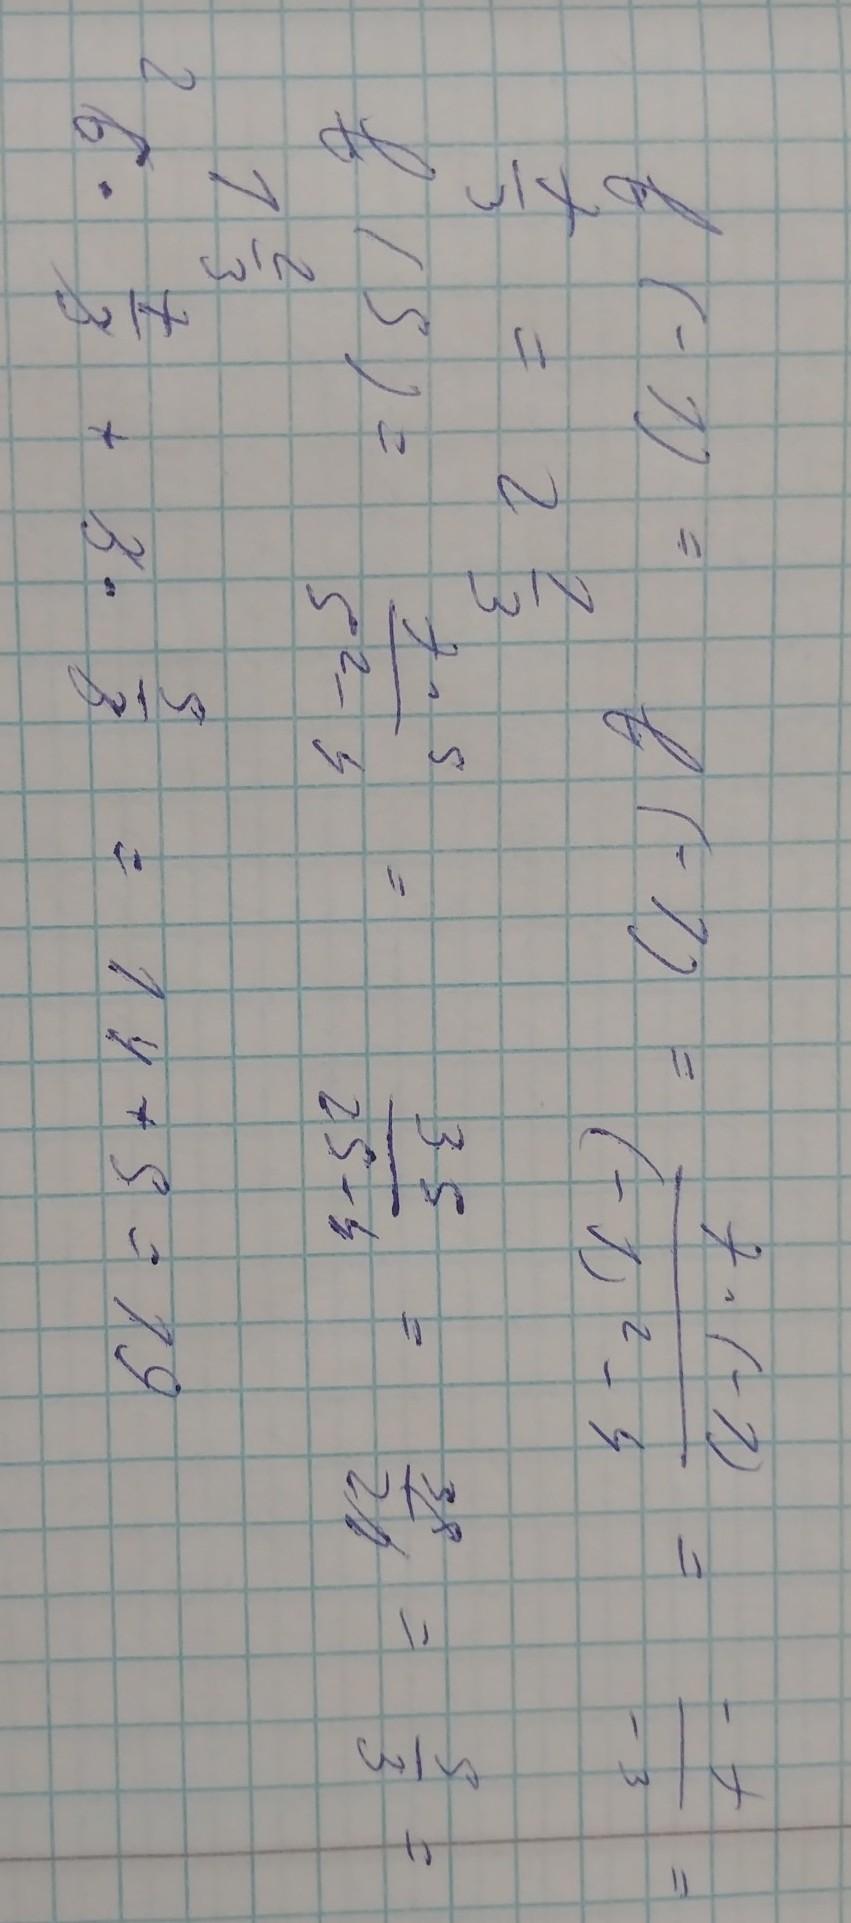 f (-1) = f (-1) = \frac{7 · (-1)}{(-1)^2 - 4} = \frac{-7}{-3} =
\frac{7}{3} = 2 \frac{1}{3}
f (5) = \frac{7 · 5}{5^2 - 4} = \frac{35}{25 - 4} = \frac{35}{21} = \frac{5}{3} =
1 \frac{2}{3}
2
6 · \frac{7}{3} + 3 · \frac{5}{3} = 14 + 5 = 19